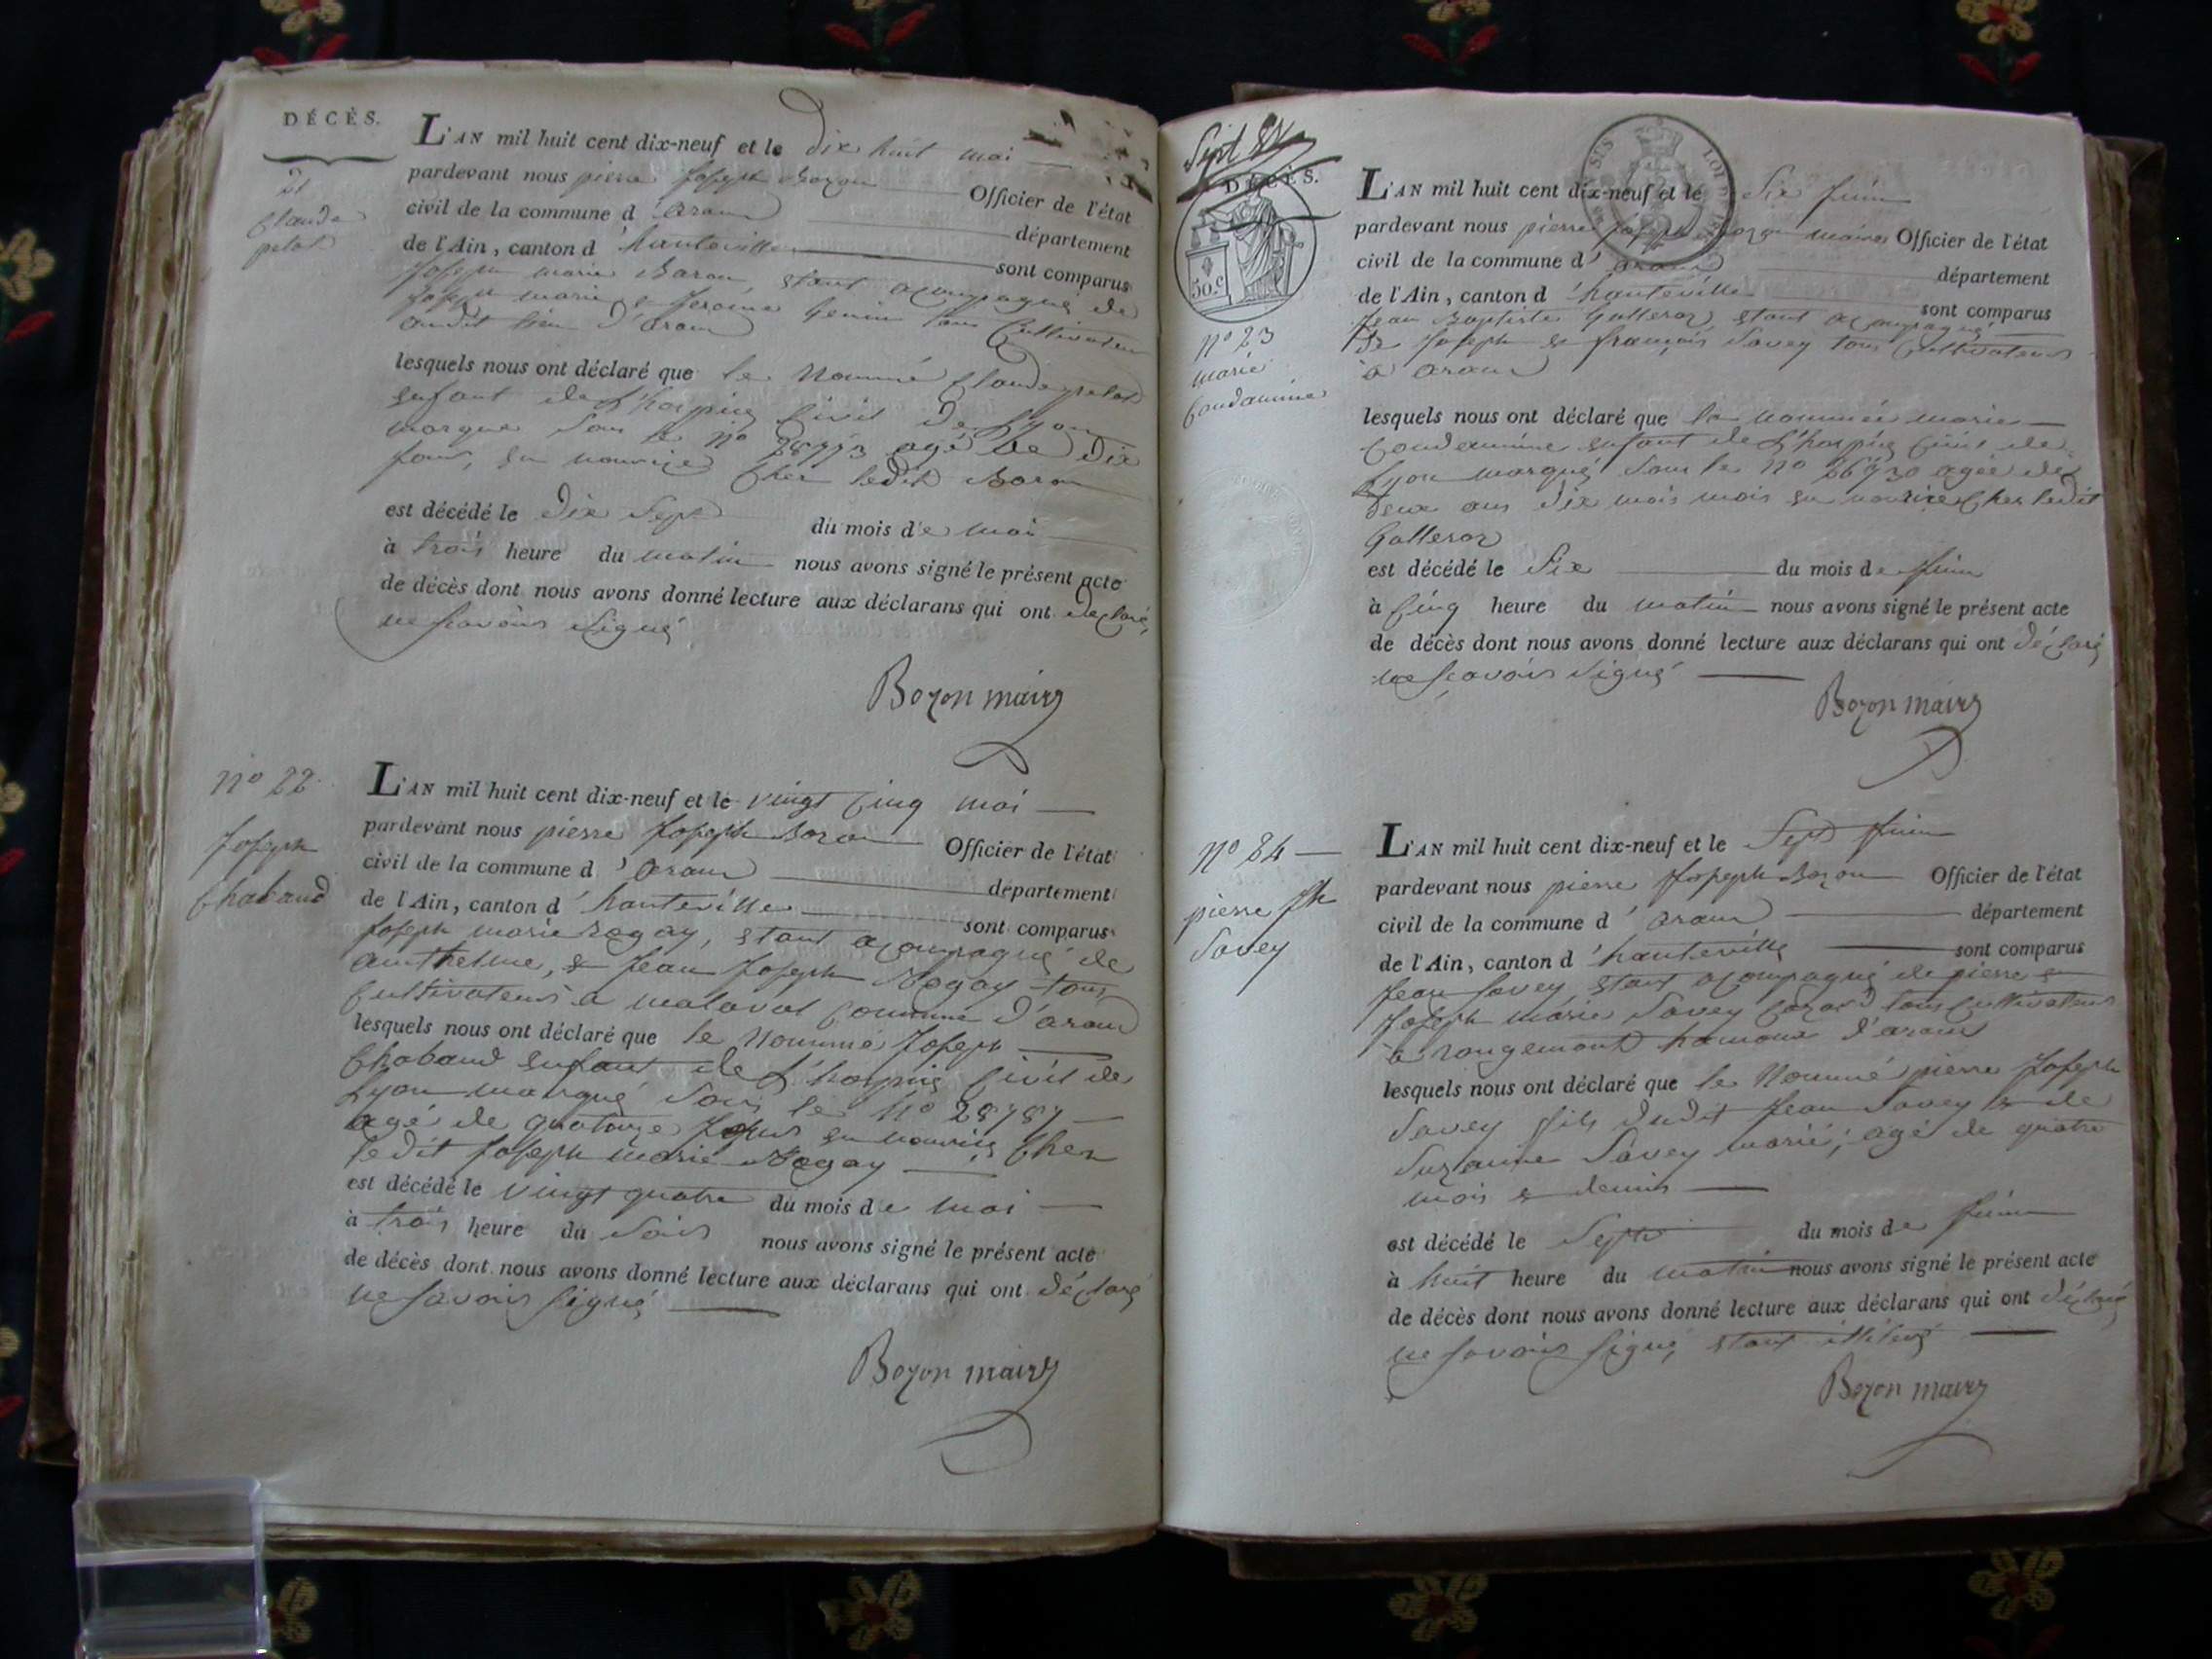 DÉCÈS.
21
Claude
petat
L'AN mil huit cent dix-neuf et le dix huit mai
pardevant nous pierre Joseph Bozon Officier de l'état
civil de la commune d'aranc département
de l'Ain, canton d'hauteville sont comparus
Joseph marie Baron, etant acompagné de
Joseph marie & Jerome Genin tous Cultivateurs
audit lieu d'aranc
lesquels nous ont déclaré que le Nommé Claude petat
enfant de L'hospice Civil De Lyon
marqué Sous le no 28773 agé de Dix
Jours, en nourice Chez ledit Baron
est décédé le Dix Sept du mois de mai
à trois heure du matin nous avons signé le présent acte
de décès dont nous avons donné lecture aux déclarans qui ont declaré,
ne scavoir Signé
Bozon maire
no 22
Joseph
Chabaud
L'AN mil huit cent dix-neuf et le vingt Cinq mai
pardevant nous pierre Joseph Bozon Officier de l'état
civil de la commune d'aranc département
de l'Ain, canton d'hauteville sont comparus
Joseph marie Rogay, etant acompagné de
anthelme, & Jean Joseph Rogay tous
Cultivateurs a malaval Commune d'aranc
lesquels nous ont déclaré que le Nommé Joseph
Chabaud enfant de L'hospice Civil de
Lyon marqué Sous le No 28787
agé de quatorze Jours en nourice Chez
ledit Joseph marie Rogay
est décédé le vingt quatre du mois de mai
à trois heure du Soir nous avons signé le présent acte
de décès dont nous avons donné lecture aux déclarans qui ont déclaré
ne savoir Signé
Bozon maire
Sept
DÉCÈS.
50.c
no 23
marie
Condamine
L'AN mil huit cent dix-neuf et le Six Juin
pardevant nous pierre Joseph Bozon maire Officier de l'état
civil de la commune d'aranc département
de l'Ain, canton d'hauteville sont comparus
Jean Baptiste Galleron etant acompagné
De Joseph & françois Savey tous Cultivateurs
à aranc
lesquels nous ont déclaré que la nommée marie
Condamine enfant de L'hospice Civil de
Lyon marqué Sous le no 26930 agée de
Deux ans dix mois mois en nourice Chez ledit
Galleron
est décédé le Six du mois de Juin
à Cinq heure du matin nous avons signé le présent acte
de décès dont nous avons donné lecture aux déclarans qui ont déclaré
ne scavoir Signé
Bozon maire
no 24
pierre Jh
Savey
L'AN mil huit cent dix-neuf et le Sept Juin
pardevant nous pierre Joseph Bozon Officier de l'état
civil de la commune d'aranc département
de l'Ain, canton d'hauteville sont comparus
Jean Savey, etant acompagné de pierre &
Joseph marie Savey tous Cultivateurs
à rougemont hameau d'aranc
lesquels nous ont déclaré que le Nommé pierre Joseph
Savey fils dudit Jean Savey & de
Suzanne Savey marié; agé de quatre
mois & demis
est décédé le Sept du mois de Juin
à huit heure du matin nous avons signé le présent acte
de décès dont nous avons donné lecture aux déclarans qui ont déclaré
ne savoir Signé, etant illiteré
Bozon maire